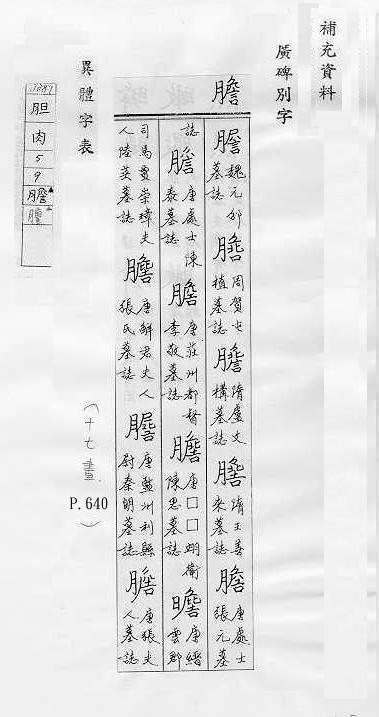 補充資料
廣碑別字
膽
膽魏元邰墓誌膽周賀屯植墓誌膽隋盧文構墓誌膽隋王善來墓誌膽唐處士張元墓
誌膽唐處士陳泰墓誌膽唐莊州都督李敬墓誌膽唐□□翊衛陳思墓誌膽唐縉雲郡
司馬賈崇璋夫人陸英墓誌膽唐解君夫人張氏墓誌膽唐監州利縣尉秦朗墓誌膽唐張夫人墓誌
異體字表
胆
肉
5
9
膽
(十七畫
P.640
)